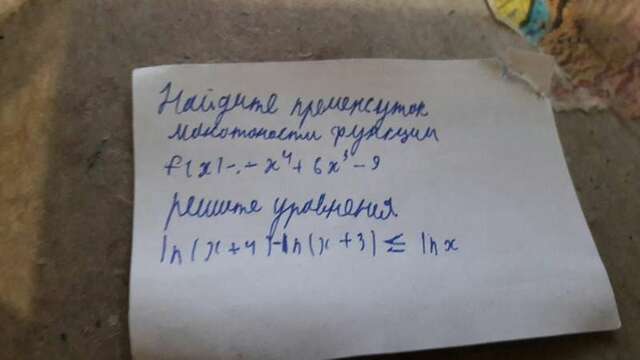 Найдите пременсуток
монотоности функции
f(x)-.-x⁴+6x³-9
решите уровнения
ln(x+4)-ln(x+3) ≤ lnx